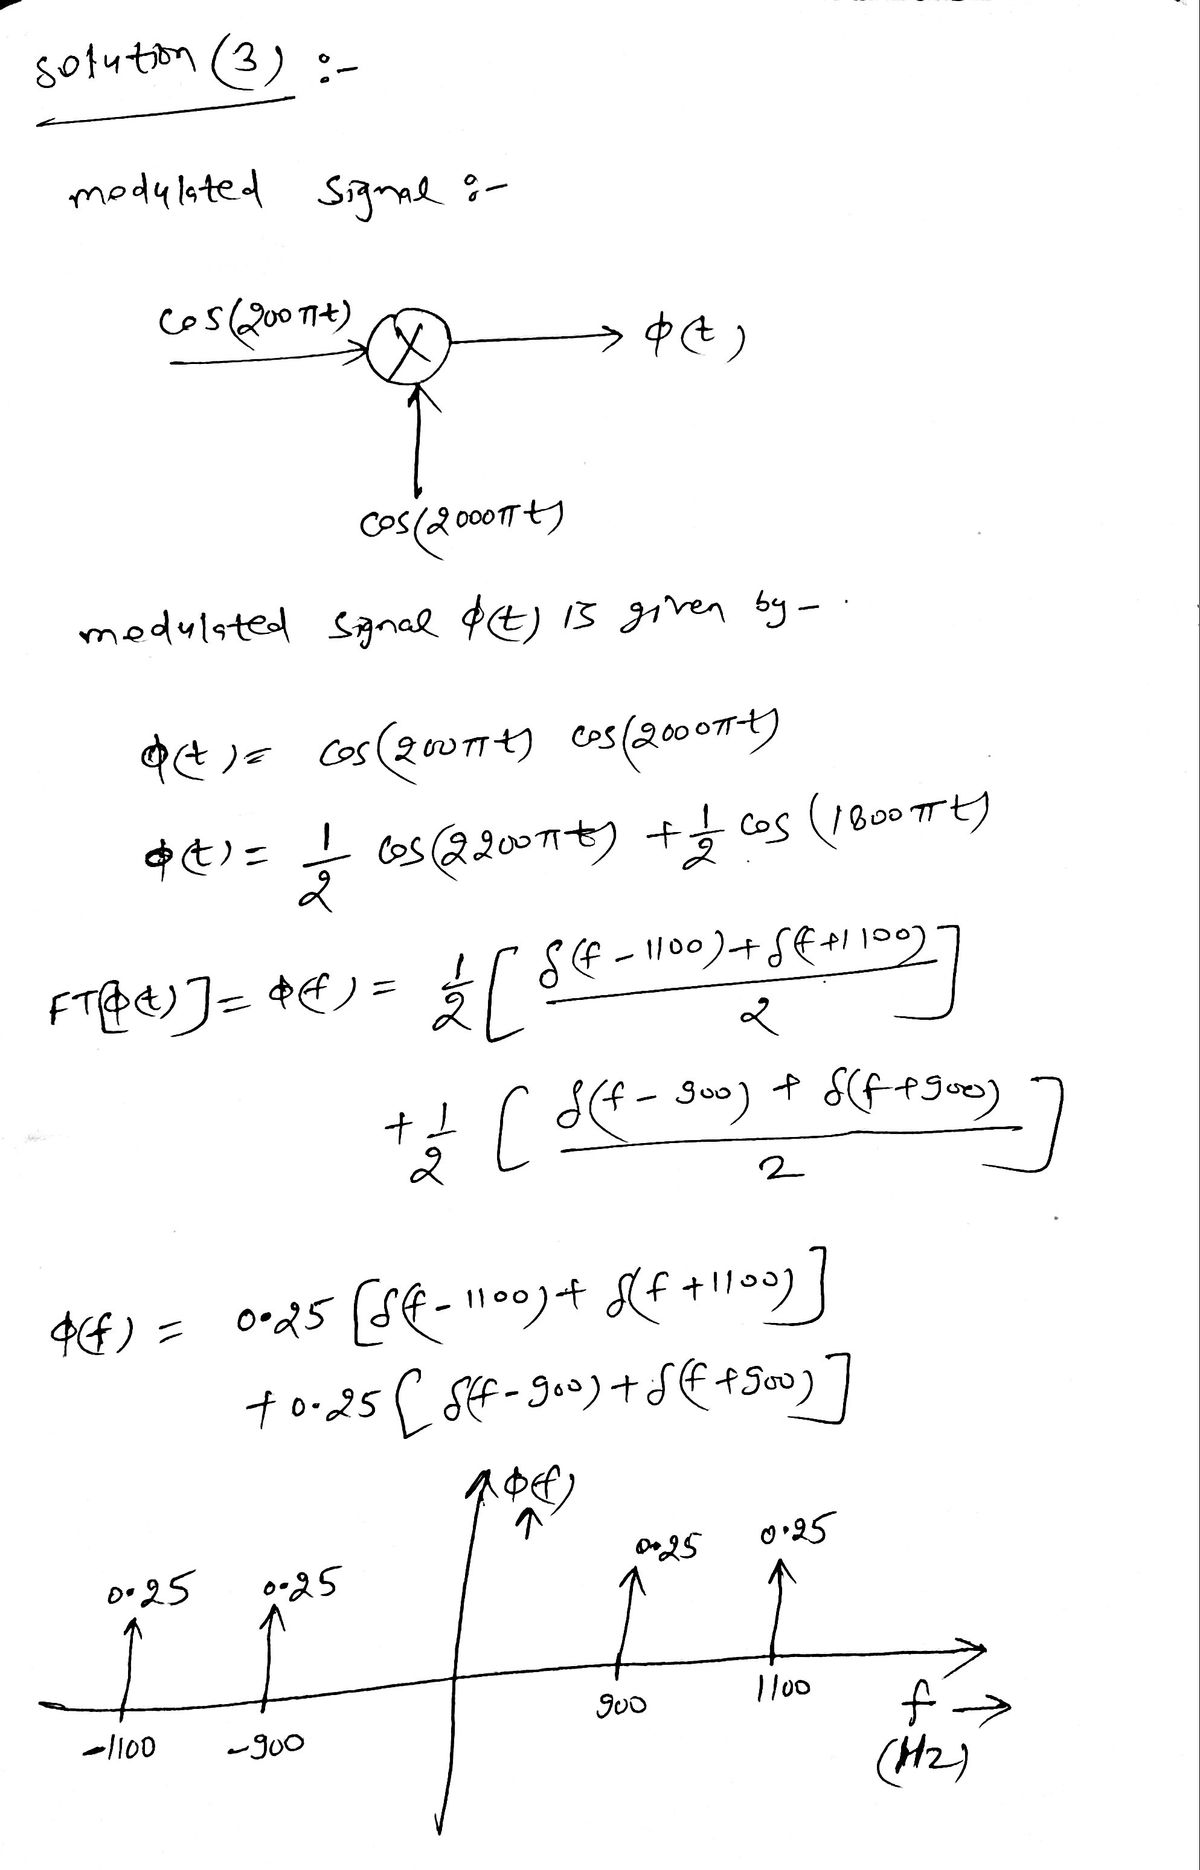 solution (3) :-
modulated signal :-
cos(200πt)
X
ϕ(t)
cos(2000πt)
modulated signal ϕ(t) is given by -
ϕ(t) = cos(200πt) cos(2000πt)
ϕ(t) = 1/2 cos(2200πt) + 1/2 cos(1800πt)
FT[ϕ(t)] = ϕ(f) = 1/2 [ (δ(f - 1100) + δ(f + 1100)) / 2 ]
+ 1/2 [ (δ(f - 900) + δ(f + 900)) / 2 ]
ϕ(f) = 0.25 [δ(f - 1100) + δ(f + 1100)]
+ 0.25 [δ(f - 900) + δ(f + 900)]
ϕ(f)
↑
0.25 0.25 0.25 0.25
-1100 -900 900 1100
f →
(Hz)